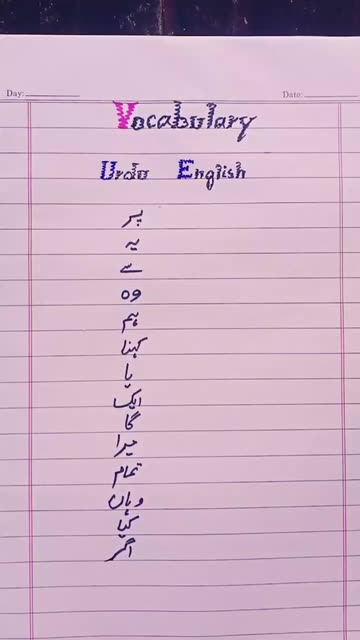 Day:
Date:
Vocabulary
Urdu English
پر
یہ
سے
وہ
ہم
کہنا
یا
ایک
گا
میرا
تمام
وہاں
کیا
اگر